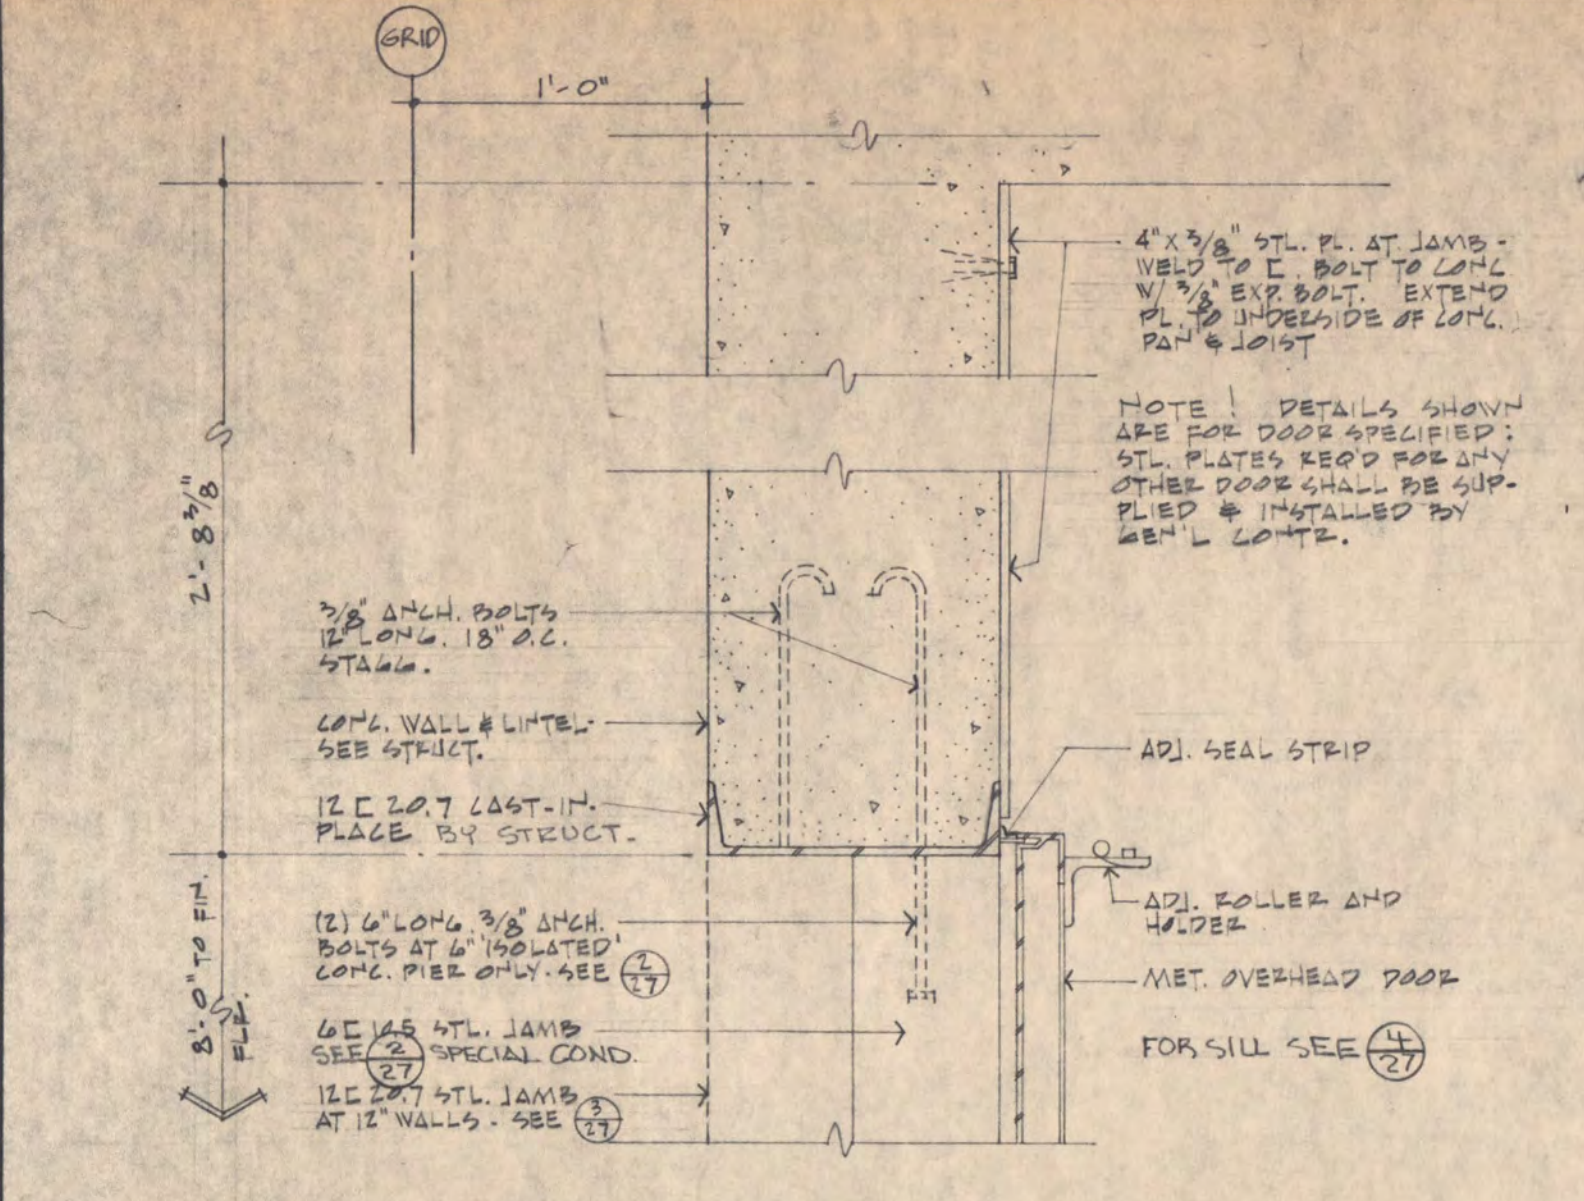 GRID
1'-0"
4" X 3/8" STL. PL. AT JAMB -
WELD TO [. BOLT TO CONC
W/ 3/8" EXP. BOLT. EXTEND
PL. TO UNDERSIDE OF CONC.
PAN & JOIST
NOTE ! DETAILS SHOWN
ARE FOR DOOR SPECIFIED:
STL. PLATES REQ'D FOR ANY
OTHER DOOR SHALL BE SUP-
PLIED & INSTALLED BY
GEN'L CONTR.
2'-8 3/8"
3/8" ANCH. BOLTS
12" LONG. 18" O.C.
STAGG.
CONC. WALL & LINTEL-
SEE STRUCT.
12 [ 20.7 CAST-IN-
PLACE BY STRUCT.
ADJ. SEAL STRIP
8'-0" TO FIN.
FLR.
(2) 6" LONG. 3/8" ANCH.
BOLTS AT 6" 'ISOLATED'
CONC. PIER ONLY. SEE 2/27
6 [ 10.5 STL. JAMB
SEE 2/27 SPECIAL COND.
12 [ 20.7 STL. JAMB
AT 12" WALLS - SEE 3/27
ADJ. ROLLER AND
HOLDER
MET. OVERHEAD DOOR
FOR SILL SEE 4/27